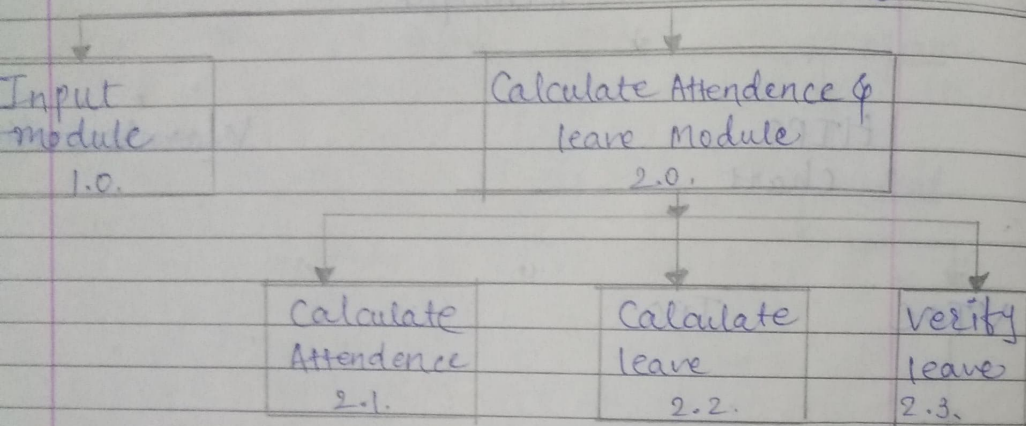 Input
module
1.0.
Calculate Attendence &
leave Module
2.0.
Calculate
Attendence
2.1.
Calculate
leave
2.2.
verify
leave
2.3.